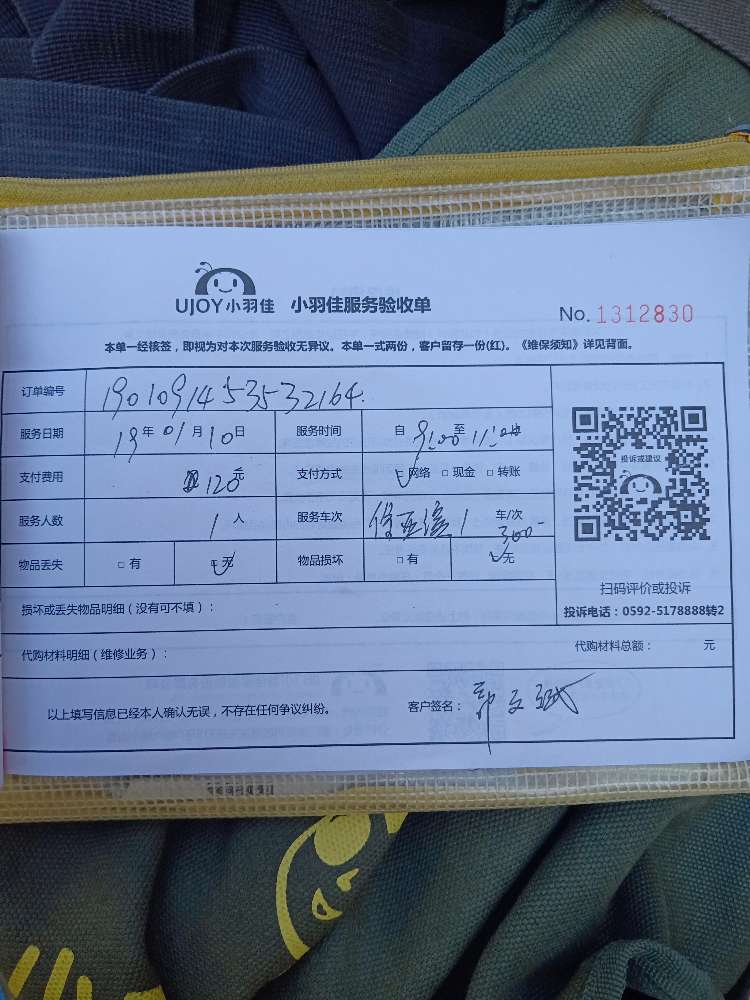 UJOY小羽佳 小羽佳服务验收单
No. 1312830
本单一经核签，即视为对本次服务验收无异议。本单一式两份，客户留存一份(红)。《维保须知》详见背面。
订单编号 1901091453532164
服务日期 19年01月10日 服务时间 自9:00至11:00
支付费用 120元 支付方式 □网络 □现金 □转账
服务人数 1人 服务车次 1 车/次
300-
物品丢失 □有 □无 物品损坏 □有 □无
投诉或建议
扫码评价或投诉
投诉电话：0592-5178888转2
损坏或丢失物品明细（没有可不填）：
代购材料明细（维修业务）： 代购材料总额： 元
以上填写信息已经本人确认无误，不存在任何争议纠纷。 客户签名：